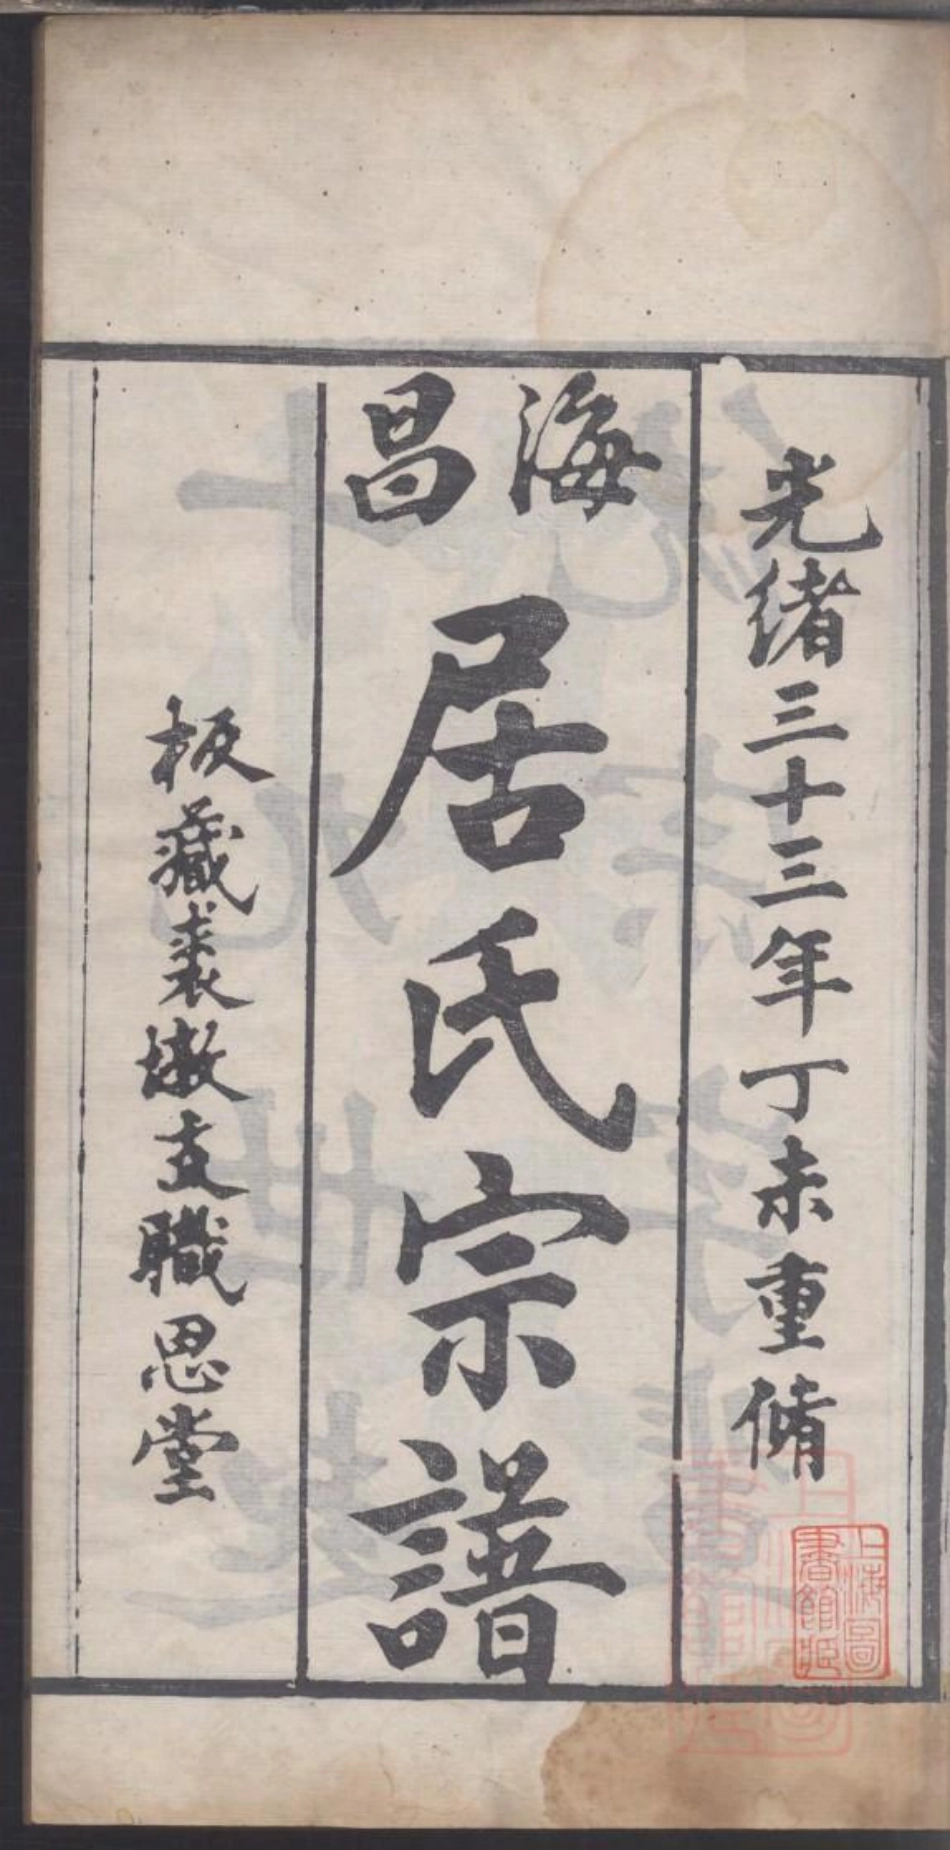 光緒三十三年丁未重脩
海昌
居氏宗譜
板藏袁墩支職思堂
上海圖書館藏